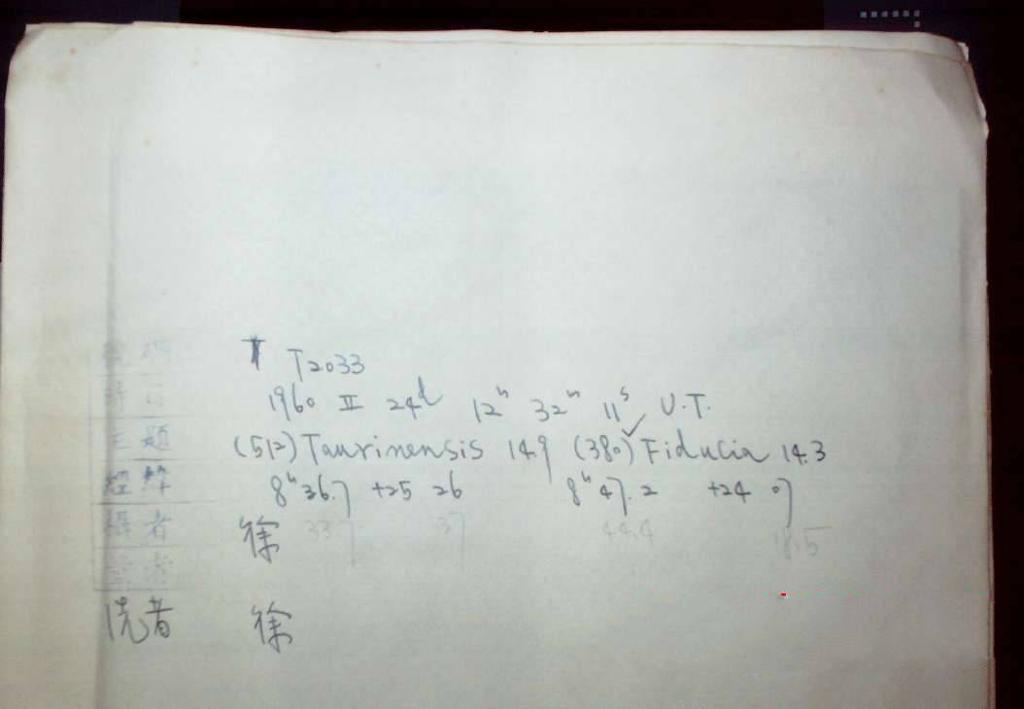 T2033
1960 II 24d 12h 32m 11s U.T.
主題 (512) Taurinensis 14.9 (380) Fiducia 14.3
8h 36.7 +25 26 8h 47.2 +24 07
攝者 徐 337 37 44.4 18.5
洗者 徐